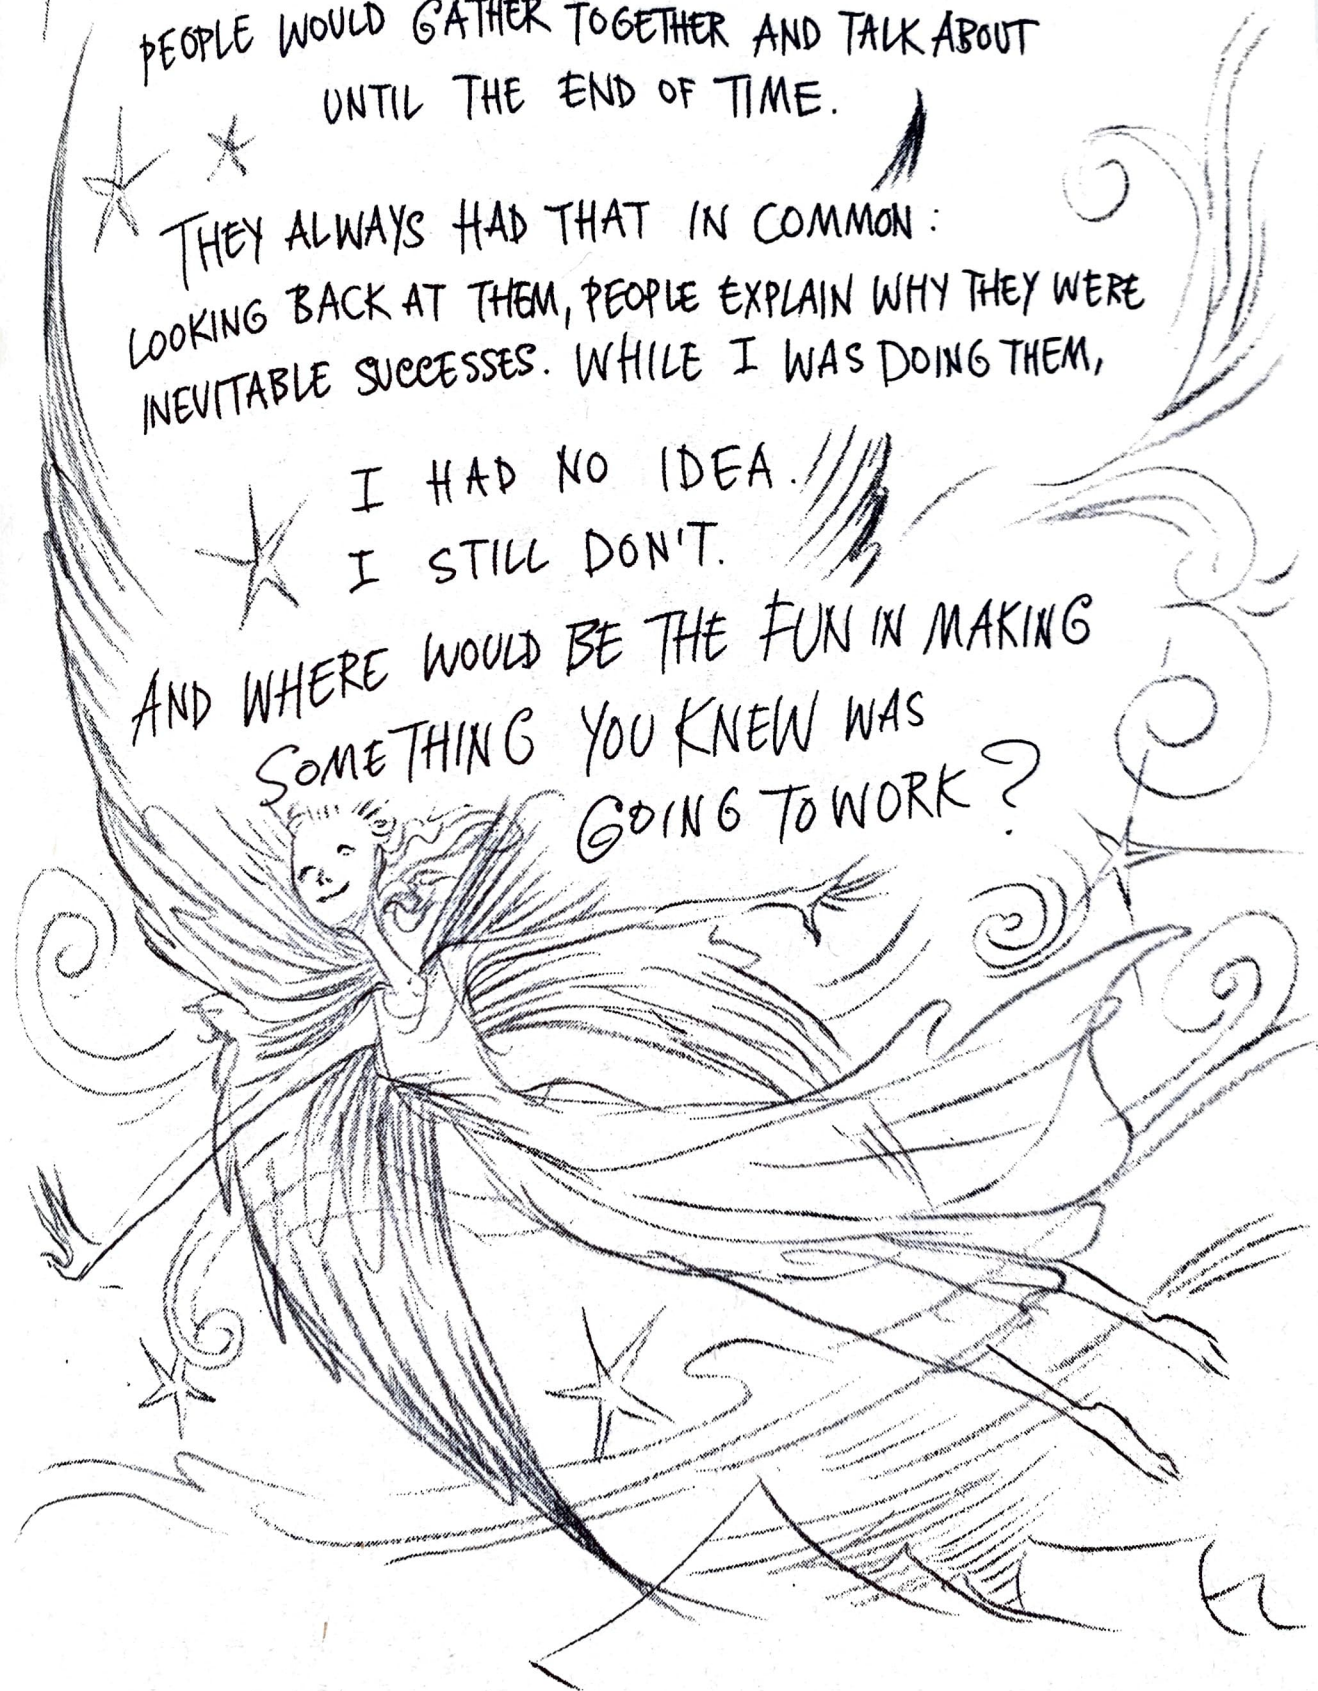 PEOPLE WOULD GATHER TOGETHER AND TALK ABOUT
UNTIL THE END OF TIME.
THEY ALWAYS HAD THAT IN COMMON:
LOOKING BACK AT THEM, PEOPLE EXPLAIN WHY THEY WERE
INEVITABLE SUCCESSES. WHILE I WAS DOING THEM,
I HAD NO IDEA.
I STILL DON'T.
AND WHERE WOULD BE THE FUN IN MAKING
SOMETHING YOU KNEW WAS
GOING TO WORK?